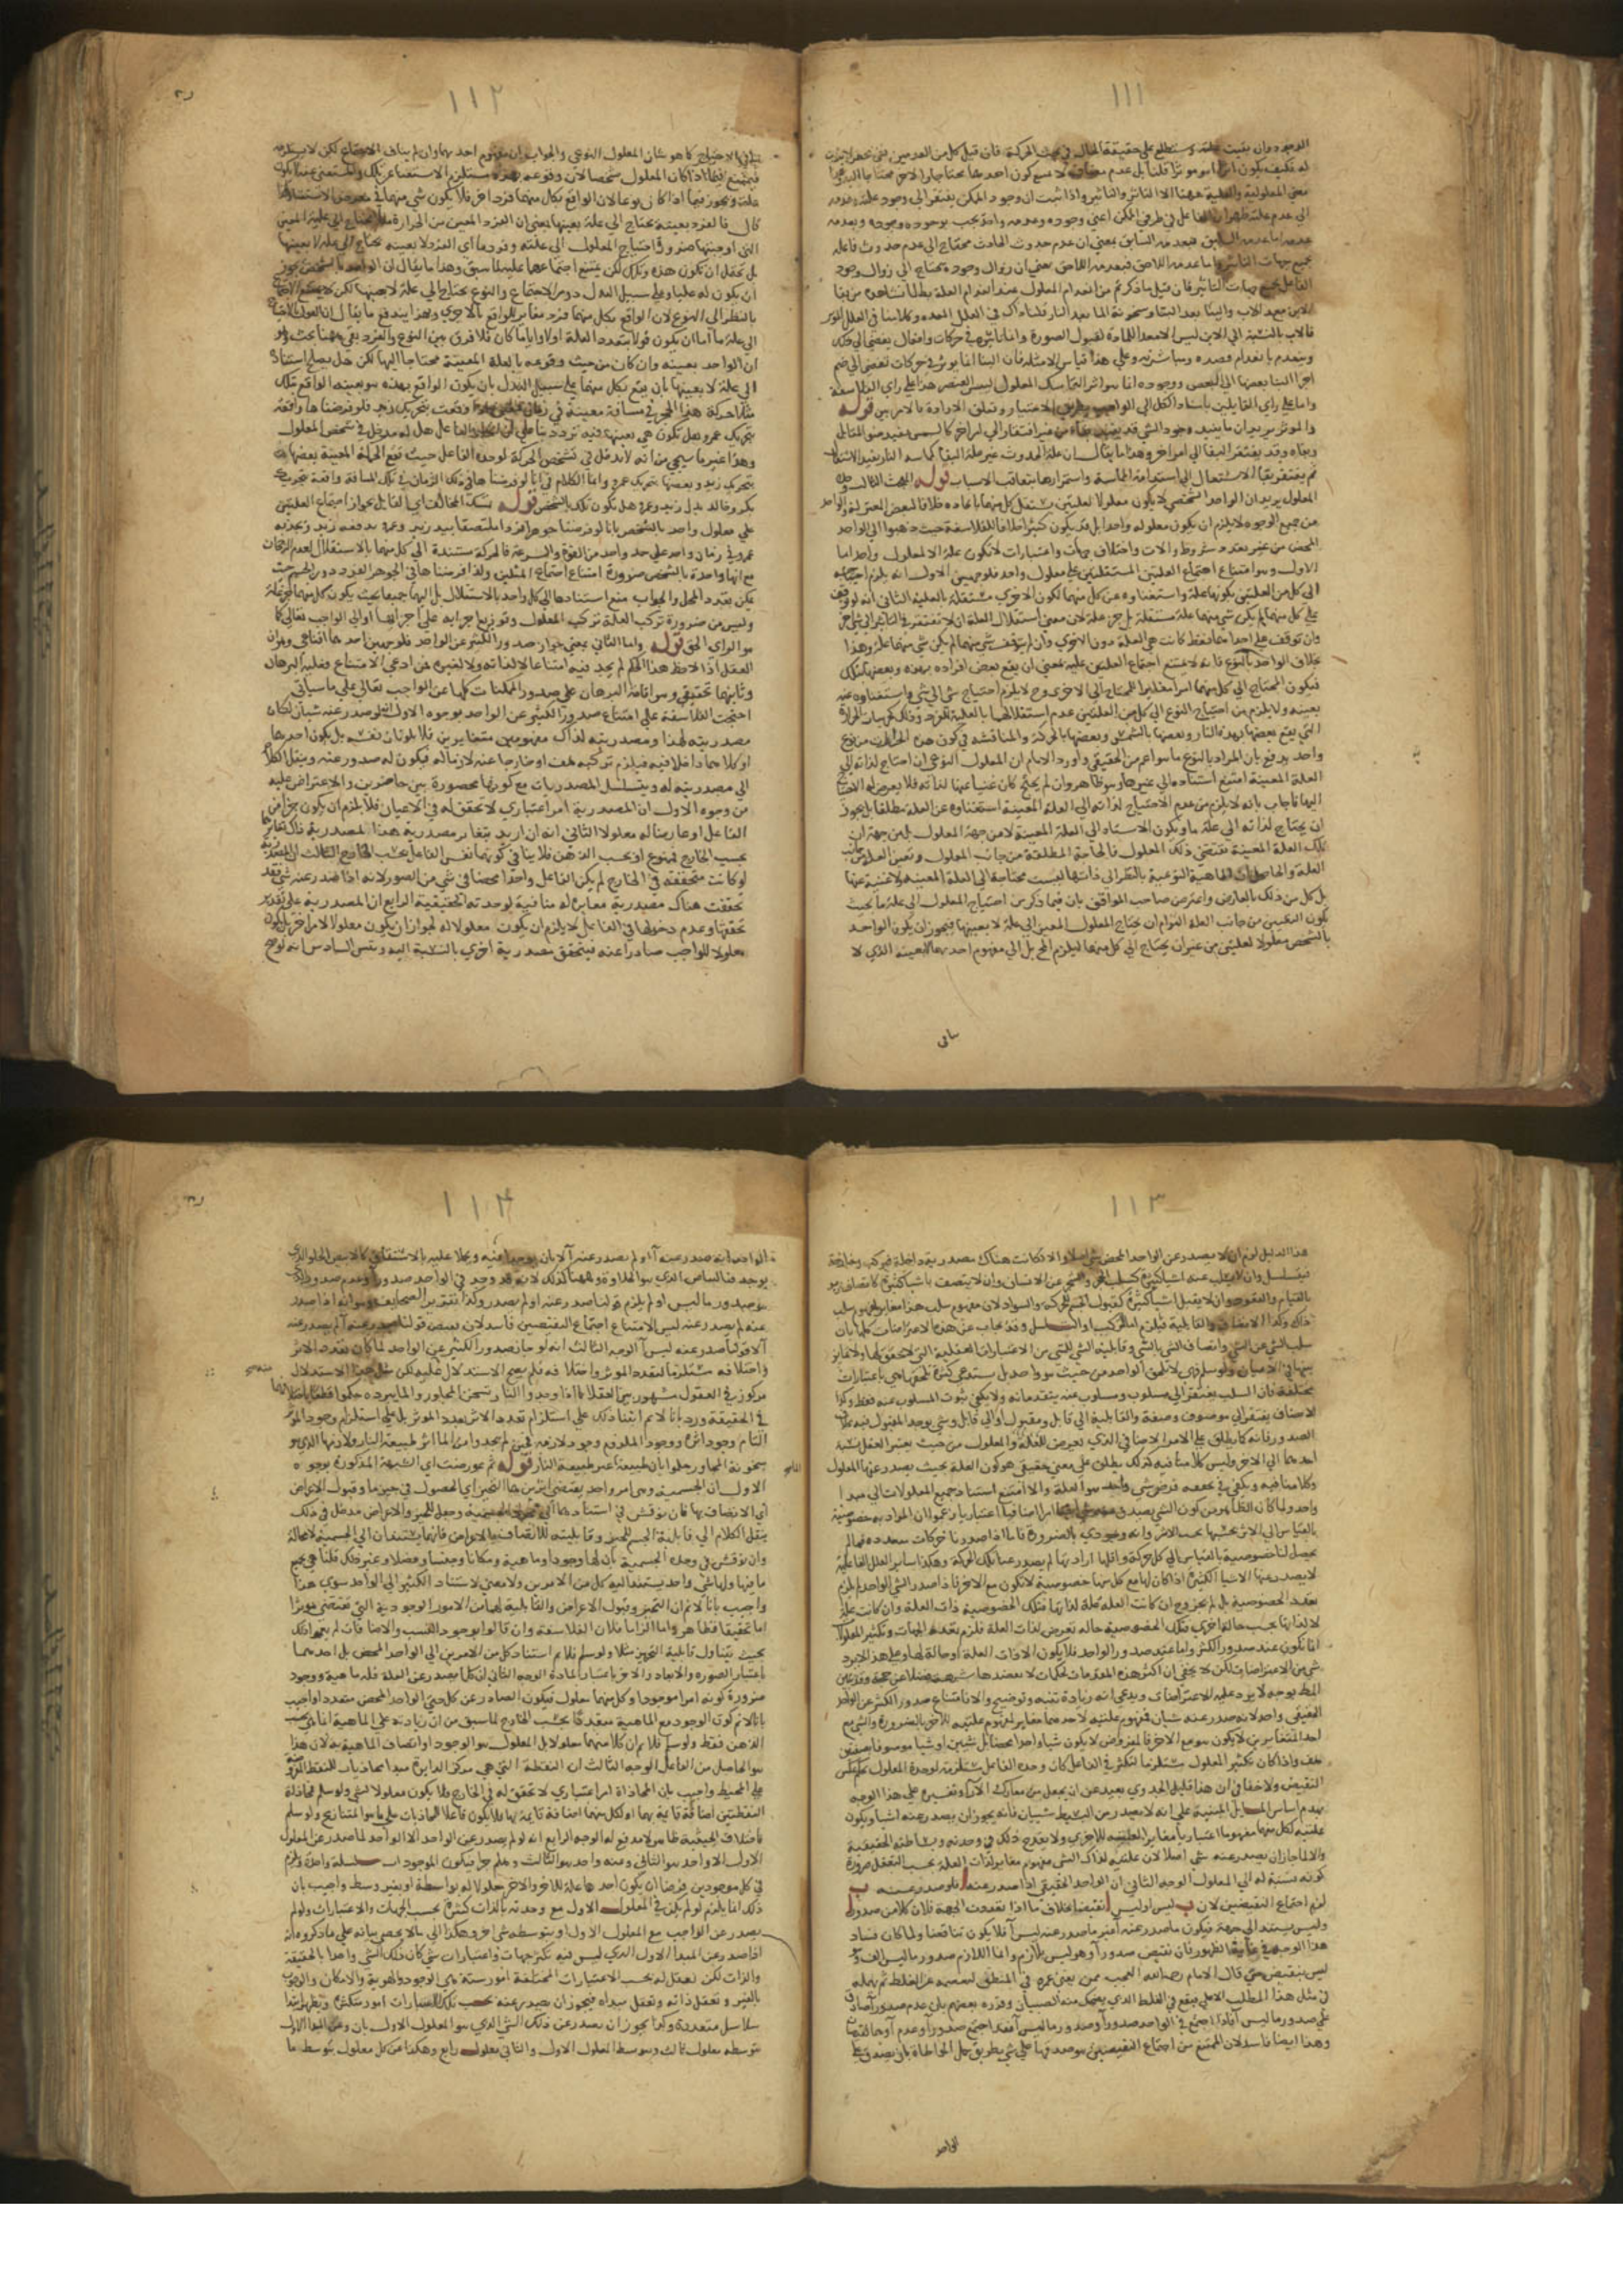 ١١١
الوجود وان بقيت علته وستطلع على حقيقة الحال في بحث الحركة فان قيل كل من العدمين نفي محض لا ثبوت
له فكيف يكون اثرا او موثرا قلنا بل عدم مضاف لا يمتنع كون احدهما محتاجا والاخر محتاجا اليه
معنى المعلولية والعلية ههنا الا التاثر والتاثير واذا ثبت ان وجود الممكن يفتقر الى وجود علته وعدمه
الى عدم علته ظهر ان الفاعل في طرفي الممكن اعني وجوده وعدمه واحد يجب بوجوده وجوده وبعدمه
عدمه اما عدمه السابق فبعدمه السابق بمعنى ان عدم حدوث الحادث محتاج الى عدم حدوث فاعله
بجميع جهات التاثير واما عدمه اللاحق فبعدمه اللاحق بمعنى ان زوال وجوده يحتاج الى زوال وجود
الفاعل بجميع جهات التاثير فان قيل ما ذكرتم من انعدام المعلول عند انعدام العلة باطل لما نشاهد من بقا
الابن بعد الاب والبنا بعد البنا وسخونة الما بعد النار قلنا ذاك في العلل المعده وكلامنا في العلل الموثره
فالاب بالنسبة الى الابن ليس الا معدا للمادة لقبول الصورة وانما تاثيره في حركات وافعال يفضي الى ذلك
وينعدم بانعدام قصده ومباشرته وعلى هذا قياس الامثلة فان البنا انما يوثر في حركات تفضي الى ضم
اجزا البنا بعضها الى البعض ووجوده انما هو اثر التماسك المعلول ليبس العنصر هذا على راي الفلاسفة
واما على راي القايلين باستناد الكل الى الواجب بطريق الاختيار وتعلق الارادة بالامر بين قوله
والموثر يريد ان ما يفيد وجود الشي قد يفيد بقاه من غير افتقار الى امر اخر كالشمس يفيد ضوء المقابل
وبقاه وقد يفتقر البقا الى امر اخر وهذا ما يقال ان علة الحدوث غير علة البقا كمماسة النار يفيد الاشتعال
ثم يفتقر بقا الاشتعال الى استدامة المماسة واستمرارها بتعاقب الاسباب قوله المبحث الثالث وحدة
المعلول يريد ان الواحد الشخصي لا يكون معلولا لعلتين يستقل كل منهما بايجاده خلافا لبعض المعتزلة والواحد
من جميع الوجوه لا يلزم ان يكون معلوله واحدا بل قد يكون كثيرا خلافا للفلاسفة حيث ذهبوا الى الواحد
المحض من غير تعدد شروط والات واختلاف جهات واعتبارات لا يكون علة الا لمعلول واحد اما
الاول وهو امتناع اجتماع العلتين المستقلتين على معلول واحد فلوجهين الاول انه يلزم احتياجه
الى كل من العلتين لكونهما علة واستغناوه عن كل منهما لكون الاخرى مستقلة بالعلية الثاني انه لو توقف
على كل منهما لم يكن شي منهما علة مستقلة بل جزء علة لان معنى استقلال العلة ان لا تفتقر في التاثير الى شي اخر
وان توقف على احدهما فقط كانت هي العلة دون الاخرى وان لم يتوقف على شي منهما لم يكن شي منهما علة وهذا
بخلاف الواحد بالنوع فانه لا يمتنع اجتماع العلتين عليه بمعنى ان يقع بعض افراده بهذه وبعضها بتلك
فيكون المحتاج الى كل منهما امرا مغايرا للمحتاج الى الاخرى وح لا يلزم احتياج شي الى شي واستغناوه عنه
بعينه ولا يلزم من احتياج النوع الى كل من العلتين عدم استقلالهما بالعلية للفرد وذلك كجزئيات الحرارة
التي يقع بعضها بهذه النار وبعضها بالشمس وبعضها بالحركة والمناقشة في كون هذه الحرارات من نوع
واحد يدفع بان المراد بالنوع ما هو اعم من الحقيقي واورد الامام ان المعلول النوعي ان احتاج لذاته الى
العلة المعينة امتنع استناده الى غيرها وهو ظاهر وان لم يحتج كان غنيا عنها لذاته فلا يعرض له الاحتياج
اليها فاجاب بانه لا يلزم من عدم الاحتياج لذاته الى العلة المعينة استغناوه عن العلة مطلقا بل يجوز
ان يحتاج لذاته الى علة ما ويكون الاستناد الى العلة المعينة لا من جهة المعلول بل من جهة ان
تلك العلة المعينة تقتضي ذلك المعلول فالحاجة المطلقة من جانب المعلول وتعين العلة من جانب
العلة والحاصل ان الماهية النوعية بالنظر الى ذاتها ليست محتاجة الى العلة المعينة ولا غنية عنها
بل كل من ذلك بالعارض واعترض صاحب المواقف بان فيما ذكر من احتياج المعلول الى علة ما بحيث
يكون التعيين من جانب العلة التوام ان يحتاج المعلول المعين الى علة لا بعينها فيجوز ان يكون الواحد
بالشخص معلولا لعلتين من غير ان يحتاج الى كل منهما ليلزم المح بل الى مفهوم احدهما لا بعينه الذي لا
١١٢
ينافي الاحتياج كما هو شان المعلول النوعي والجواب ان مفهوم احدهما وان لم يناف الاجتماع لكن لا يستلزمه
فيمتنع فيما اذا كان المعلول شخصا لان وقوعه بهذه يستلزم الاستغنا عن تلك
علة ويجوز فيما اذا كان نوعا لان الواقع بكل منهما فرد اخر فلا يكون شي منهما في معرض الاستغنا
قال فالفرد بعينه يحتاج الى علة بعينها بمعنى ان الفرد المعين من الحرارة مثلا يحتاج الى علته المعينة
التي اوجبتها ضرورة احتياج المعلول الى علته وفرد ما اي الفرد لا بعينه يحتاج الى علة لا بعينها
بل تحتمل ان يكون هذه وتلك لكن يمتنع اجتماعهما عليه لما سبق وهذا ما يقال ان الواحد بالشخص يجوز
ان يكون له علتان على سبيل البدل دون الاجتماع والنوع يحتاج الى علة لا بعينها لكن لا يمتنع الاجتماع
بالنظر الى النوع لان الواقع بكل منهما فرد مغاير للواقع بالاخرى وبهذا يندفع ما يقال ان
الى علة ما اما ان يكون قولا بتعدد العلة اولا وايا ما كان فلا فرق بين النوع والفرد بقي ههنا بحث وهو
ان الواحد بعينه وان كان من حيث وقوعه بالعلة المعينة محتاجا اليها لكن هل يصلح استناده
الى علة لا بعينها بان يقع بكل منهما على سبيل البدل بان يكون الواقع بهذه هو بعينه الواقع بتلك
مثلا حركة هذا الحجر في مسافة معينة في زمان معين اذا وقعت بتحريك زيد فلو فرضناها واقعة
بتحريك عمرو هل تكون هي بعينها فيه تردد بنا على ان الفاعل هل له مدخل في تشخص المعلول
وهذا غير ما سيجي من انه لا مدخل في تشخص الحركة لوحدة الفاعل حيث تقع الحركة المعينة بعضها
بتحريك زيد وبعضها بتحريك عمرو وانما الكلام في انا لو فرضنا في ذلك الزمان في تلك المسافة واقعة بتحريك
بكر وخالد بدل زيد وعمرو هل تكون تلك بالشخص قوله تمسك المخالف اي القايل بجواز اجتماع العلتين
على معلول واحد بالشخص بانا لو فرضنا جوهرا فردا ملتصقا بيد زيد وعمرو يدفعه زيد ويجذبه
عمرو في زمان واحد على حد واحد من القوة والسرعة فالحركة مستندة الى كل منهما بالاستقلال لعدم الرجحان
مع انها واحدة بالشخص ضرورة امتناع اجتماع المثلين ولذا فرضناها في الجوهر الفرد دون الجسم حيث
يمكن تعدد المحل والجواب منع استنادها الى كل واحد بالاستقلال بل اليهما جميعا بحيث يكون كل منهما جزء علة
وليس من ضرورة تركب العلة تركب المعلول وتوزيع اجزايه على اجزايها او الى الواجب تعالى كما
هو الراي الحق قوله واما الثاني يعني جواز صدور الكثير عن الواحد فلوجهين احدهما اقناعي وهو ان
العقل اذا لاحظ هذا الحكم لم يجد فيه امتناعا لا لذاته ولا لغيره فمن ادعى الامتناع فعليه البرهان
وثانيهما تحقيقي وهو اقامة البرهان على صدور الممكنات كلها عن الواجب تعالى على ما سياتي
احتجت الفلاسفة على امتناع صدور الكثير عن الواحد بوجوه الاول انه لو صدر عنه شيان لكان
مصدريته لهذا ومصدريته لذاك مفهومين متغايرين فلا يكونان نفسه بل يكون احدهما
او كلاهما داخلا فيه فيلزم تركبه هف او خارجا عنه لازما له فيكون له صدور عنه وينقل الكلام
الى مصدريته له ويتسلسل المصدريات مع كونها محصورة بين حاصرين والاعتراض عليه
من وجوه الاول ان المصدرية امر اعتباري لا تحقق له في الاعيان فلا يلزم ان يكون جزا من
الفاعل او عارضا له معلولا الثاني انه ان اريد بتغاير مصدرية هذا لمصدرية ذاك تغايرهما
بحسب الخارج فممنوع او بحسب الذهن فلا ينافي كونهما نفس الفاعل بحسب الخارج الثالث ان المصدرية
لو كانت متحققة في الخارج لم يكن الفاعل واحدا محضا في شي من الصور لانه اذا صدر عنه شي فقد
تحققت هناك مصدرية مغايرة له منافية لوحدته الحقيقية الرابع ان المصدرية على تقدير
تحققها وعدم دخولها في الفاعل لا يلزم ان يكون معلولا له لجواز ان يكون معلولا لامر اخر
معلولا للواجب صادرا عنه فيتحقق مصدرية اخرى بالنسبة اليه ويتس السادس انه لو صح
١١٣
هذا الدليل لزم ان لا يصدر عن الواحد المحض شي اصلا والا لكانت هناك مصدرية داخلة فيركب وخارجة
فيتسلسل وان لا يسلب عنه اشيا كثيرة كسلب الحجر والشجر عن الانسان وان لا يتصف باشيا كثيرة كاتصاف زيد
بالقيام والقعود وان لا يقبل اشيا كثيرة كقبول الجسم للحركة والسواد لان مفهوم سلب هذا مغاير لمفهوم سلب
ذاك وكذا الاتصاف والقابلية فيلزم اما التركيب او التسلسل وقد يجاب عن هذه الاعتراضات كلها بان
سلب الشي عن الشي واتصاف الشي بالشي وقابلية الشي للشي من الاعتبارات العقلية التي لا تحقق لها ولا تمايز
بينها في الاعيان ولو سلم فهي لا تلحق الواحد من حيث هو واحد بل يستدعي كثرة تلحقها هي باعتبارات
مختلفة فان السلب يفتقر الى مسلوب ومسلوب عنه يتقدمانه ولا يكفي ثبوت المسلوب عنه فقط وكذا
الاتصاف يفتقر الى موصوف وصفة والقابلية الى قابل ومقبول او الى قابل وشي يوجد المقبول فيه بخلاف
الصدور فانه كما يطلق على الامر الاضافي الذي يعرض للعلة والمعلول من حيث يعتبر العقل نسبة
احدهما الى الاخر وليس كلامنا فيه كذلك يطلق على معنى حقيقي هو كون العلة بحيث يصدر عنها المعلول
وكلامنا فيه ويكفي في تحققه فرض شي واحد هو العلة والا امتنع استناد جميع المعلولات الى مبدا
واحد ولما كان الظاهر من كون الشي بحيث يصدر عنه شي ايضا امرا اضافيا اعتباريا زعموا ان المراد به خصوصية
بالقياس الى الاثر بحسبها يجب الاثر وانه وجودي بالضرورة فانا اذا صدرنا حركات متعددة فما لم
يحصل لنا خصوصية بالقياس الى كل حركة واقلها ارادتها لم يصدر عنا تلك الحركة وهكذا ساير العلل الفاعلية
لا يصدر عنها الاشيا الكثيرة الا اذا كان لها مع كل منها خصوصية لا تكون مع الاخر فاذا صدر الشي الواحد لم يلزم
تعدد الخصوصية بل لم يجز وح ان كانت العلة علة لذاتها فتلك الخصوصية ذات العلة وان كانت علة
لا لذاتها بحسب حالة اخرى فتلك الخصوصية حالة تعرض لذات العلة فلزوم تعدد الجهات وتكثر المعلول
انما تكون عند صدور الكثير واما عند صدور الواحد فلا يكون الا ذات العلة او حالة لها وعلى هذا لا يرد
شي من الاعتراضات لكن لا يخفى ان اكثر هذه المقدمات تحكمات لا يعضدها شبهة فضلا عن حجة وقد يبين
المط بوجه لا يرد عليه الاعتراضات ويدعى انه زيادة تنبيه وتوضيح والا فامتناع صدور الكثير عن الواحد
الحقيقي واحد لانه صدر عنه شيان فمفهوم عليته لاحدهما مغاير لمفهوم عليته للاخر بالضرورة والشي مع
احد المتغايرين لا يكون هو مع الاخر فالمفروض لا يكون شيا واحدا محضا بل شيين او شيا موصوفا بصفتين
هف واذا كان تكثر المعلول مستلزما لتكثر في الفاعل كان وحدة الفاعل مستلزمة لوحدة المعلول بحكم عكس
النقيض ولا خفا في ان هذا قليل الجدوى بعيد عن ان يجعل من معارك الارا وتفسيره على هذا الوجه
يهدم اساس المسايل المبنية على انه لا يصدر من البسيط شيان فانه يجوز ان يصدر عنه اشيا ويكون
عليته لكل منها مفهوما اعتباريا مغايرا لعليته للاخرى ولا يقدح ذلك في وحدته وبساطته الحقيقية
والا لما جاز ان يصدر عنه شي اصلا لان عليته لذاك الشي مفهوم مغاير لذات العلة بحسب التعقل ضرورة
كونه نسبة له الى المعلول الوجه الثاني ان الواحد الحقيقي اذا صدر عنه ا فلو صدر عنه ب
لزم اجتماع النقيضين لان ب ليس ا وليس ا نقيض ا بخلاف ما اذا تعددت الجهة فلان كلا من صدور ا
وليس يستند الى جهة فيكون ما صدر عنه ا غير ما صدر عنه ليس ا فلا يكون تناقضا ولما كان فساد
هذا الوجه في غاية الظهور فان نقيض صدور ا هو ليس بلازم وانما اللازم صدور ما ليس ا
ليس بنقيض حتى قال الامام رحمه الله العجب ممن يفني عمره في المنطق ليعصمه عن الغلط ثم يهمله
في مثل هذا المطلب الاعلى فيقع في الغلط الذي يضحك منه الصبيان وقرره بعضهم بان عدم صدور ا صادق
على صدور ما ليس ا فاذا اجتمع في الواحد صدور ا وصدور ما ليس ا فقد اجتمع صدور ا وعدم ا وهما نقيضان
وهذا ايضا فاسد لان الممتنع من اجتماع النقيضين هو صدقهما على شي بطريق حمل المواطاة بان يصدق على
الواحد
١١٤
الواحد انه صدر عنه ا او لم يصدر عنه ا لا بان يوجدا فيه ويحملا عليه بالاشتقاق كالابيض الحلو الذي
يوجد فيه البياض الذي هو اللاحلاوة وههنا كذلك لانه قد وجد في الواحد صدور ا وعدم صدور ا الذي
هو صدور ما ليس ا ولم يلزم قولنا صدر عنه ا ولم يصدر وكذا تقرير الصحايف وهو انه اذا صدر
عنه لم يصدر عنه ليس ا لامتناع اجتماع النقيضين فاسد لان نقيض قولنا صدر عنه ا لم يصدر عنه
ا لا قولنا صدر عنه ليس ا الوجه الثالث انه لو جاز صدور الكثير عن الواحد لما كان تعدد الاثر
واختلافه مستلزما لتعدد الموثر واختلافه فلم يصح الاستدلال عليه لكن مثل هذا الاستدلال
مركوز في العقول مشهور بين العقلا فانهم اذا وجدوا النار تسخن المجاور والما يبرده حكموا قطعا باختلافهما
في الحقيقة ورد بانا لا نم ابتنا ذلك على استلزام تعدد الاثر تعدد الموثر بل على استلزام وجود الموثر
التام وجود اثره ووجود الملزوم وجود لازمه فحين لم يجدوا من الما اثر لطبيعة النار ولازمها الذي هو
سخونة المجاور حكموا بان طبيعته غير طبيعة النار قوله ثم عورضت اي الشبهة المذكورة بوجوه
الاول ان الجسمية وهي امر واحد يقتضي اثرين هما التحيز اي الحصول في حيز ما وقبول الاعراض
اي الاتصاف بها فان نوقش في استنادهما الى مجرد الجسمية وجعل للحيز والاعراض مدخل في ذلك
ينقل الكلام الى قابلية الجسم للحيز وقابليته للاتصاف بالاعراض فانهما يستندان الى الجسمية لا محالة
وان نوقش في وحدة الجسمية بان لها وجودا وماهية وامكانا وجنسا وفصلا وغير ذلك قلنا هي بجميع
ما فيها ولها شي واحد يستند اليه كل من الامرين ولا معنى لاستناد الكثير الى الواحد سوى هذا
واجيب بانا لا نم ان التحيز وقبول الاعراض والقابلية لهما من الامور الوجودية التي تقتضي موثرا
اما تحقيقا فظاهر واما الزاما فلان الفلاسفة وان قالوا بوجود النسب والاضافات لم يقولوا ذلك
بحيث يتناول قابلية التحيز مثلا ولو سلم فلا نم استناد كل من الامرين الى الواحد المحض بل احدهما
باعتبار الصورة والاخر باعتبار المادة الوجه الثاني ان كل ما يصدر عن العلة فله ماهية ووجود
ضرورة كونه امرا موجودا وكل منهما معلول فيكون الصادر عن كل حتى الواحد المحض متعددا واجيب
بانا لا نم كون الوجود مع الماهية متعددا بحسب الخارج لما سبق من ان زيادته على الماهية انما هي بحسب
الذهن فقط ولو سلم فلا نم ان كلا منهما معلول بل المعلول هو الوجود او اتصاف الماهية به لان هذا
هو الحاصل من الفاعل الوجه الثالث ان النقطة التي هي مركز الدايرة مبدا محاذيات للنقط المفروضة
على المحيط واجيب بان المحاذاة امر اعتباري لا تحقق له في الخارج فلا يكون معلولا لشي ولو سلم فمحاذاة
النقطتين اضافة قايمة بهما او لكل منهما اضافة قايمة بها فلا يكون فاعلا للمحاذيات على ما هو المتنازع ولو سلم
فاختلاف الحيثية ظاهر لا مدفع له الوجه الرابع انه لو لم يصدر عن الواحد الا الواحد لما صدر عن المعلول
الاول الا واحد هو الثاني وعنه واحد هو الثالث وهلم جرا فيكون الموجودات سلسلة واحدة ويلزم
في كل موجودين فرضنا ان يكون احدهما علة للاخر والاخر معلولا له بواسطة او بغير وسط واجيب بان
ذلك انما يلزم لو لم يكن في المعلول الاول مع وحدته بالذات كثرة بحسب الجهات والاعتبارات ولو لم
يصدر عن الواجب مع المعلول الاول او بتوسطه شي اخر وهكذا الى ما لا يحصى بيانه على ما ذكروه انه
اذا صدر عن المبدا الاول الذي ليس فيه تكثر جهات واعتبارات شي كان ذلك الشي واحدا بالحقيقة
والذات لكن يعقل له بحسب الاعتبارات المختلفة امور ستة هي الوجود والهوية والامكان والوجوب
بالغير وتعقل ذاته وتعقل مبداه فيجوز ان يصدر عنه بحسب تلك الاعتبارات امور متكثرة ويظهر ابتدا
سلاسل متعددة وكما يجوز ان يصدر عن ذلك الشي الذي هو المعلول الاول بان وعن المبدا الاول
بتوسطه معلول ثالث وبتوسط المعلول الاول والثاني معلول رابع وهكذا من كل معلول بتوسط ما